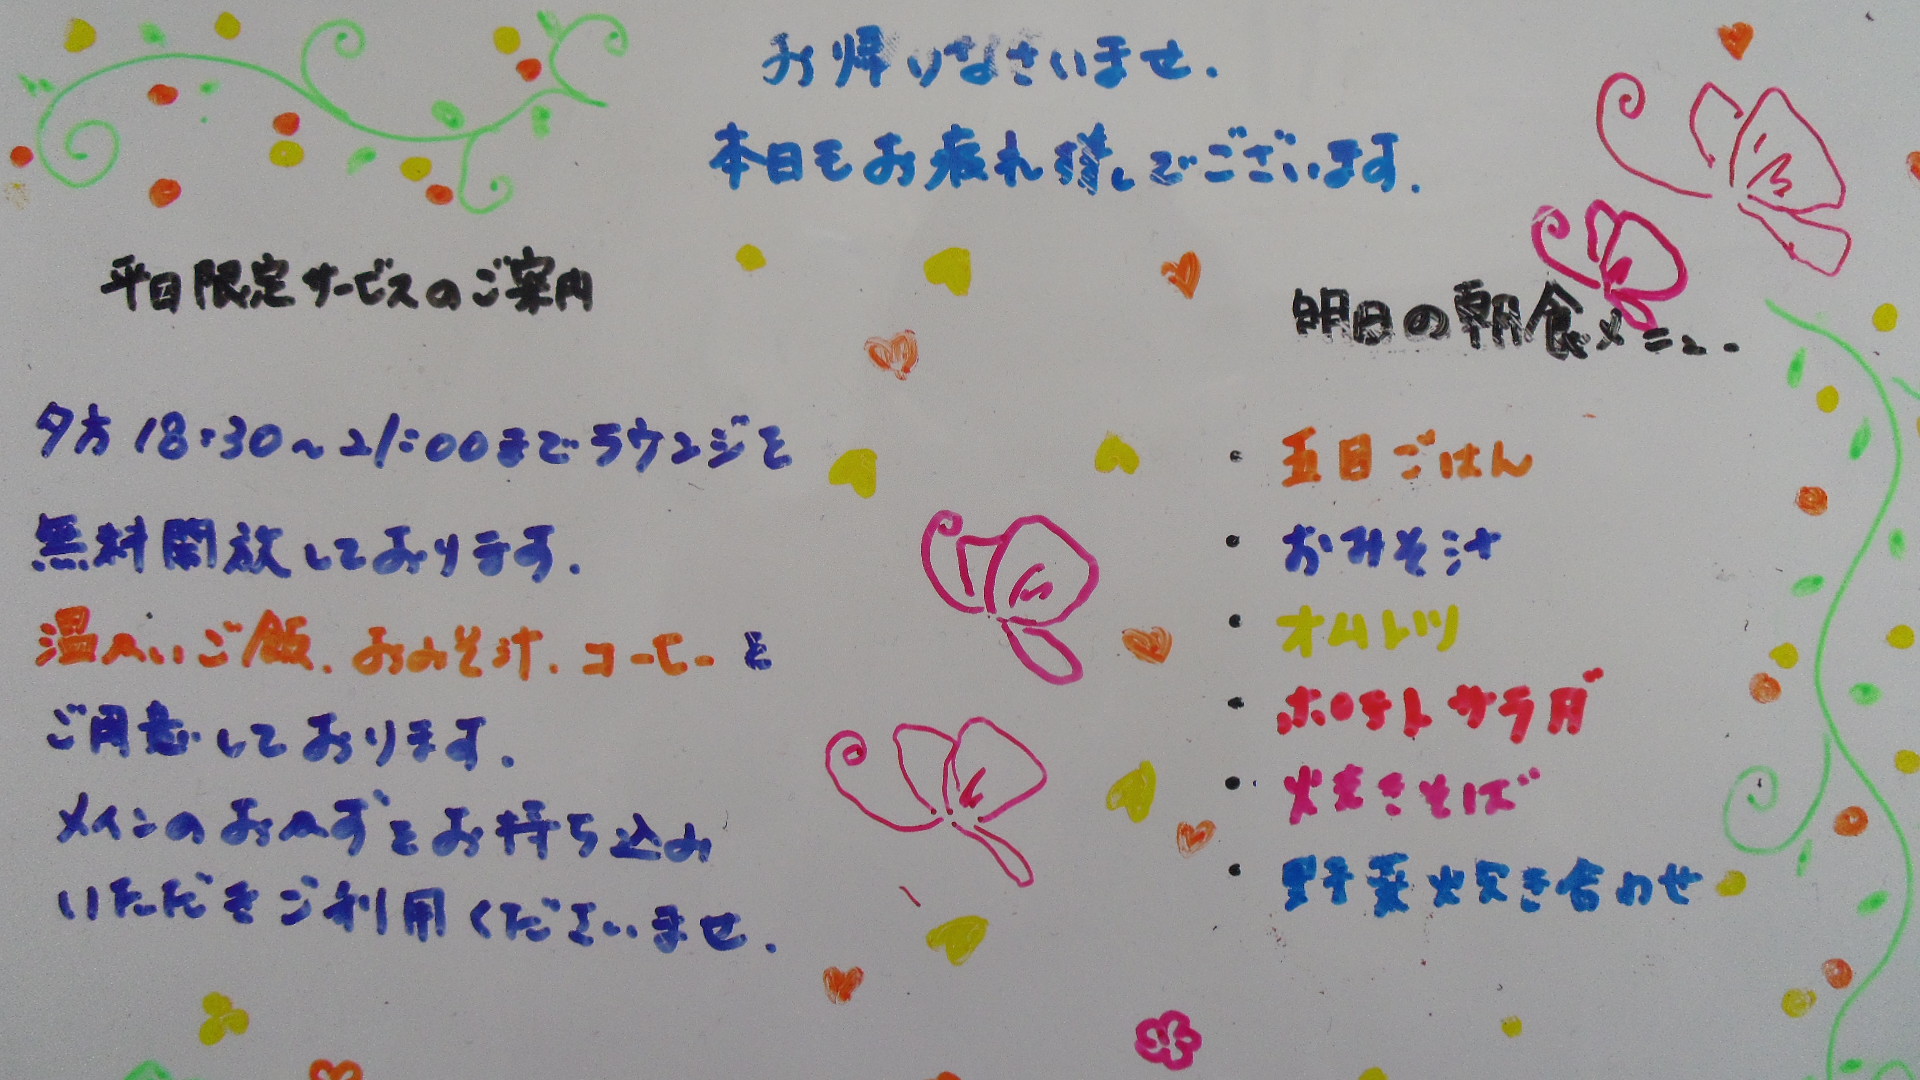 お帰りなさいませ.
本日もお疲れ様でございます.
平日限定サービスのご案内
夕方18:30~21:00までラウンジを
無料開放しております.
温かいご飯.おみそ汁.コーヒーを
ご用意しております.
メインのおかずをお持ち込み
いただきご利用くださいませ.
明日の朝食メニュー.
・五目ごはん
・おみそ汁
・オムレツ
・ポテトサラダ
・焼きそば
・野菜炊き合わせ